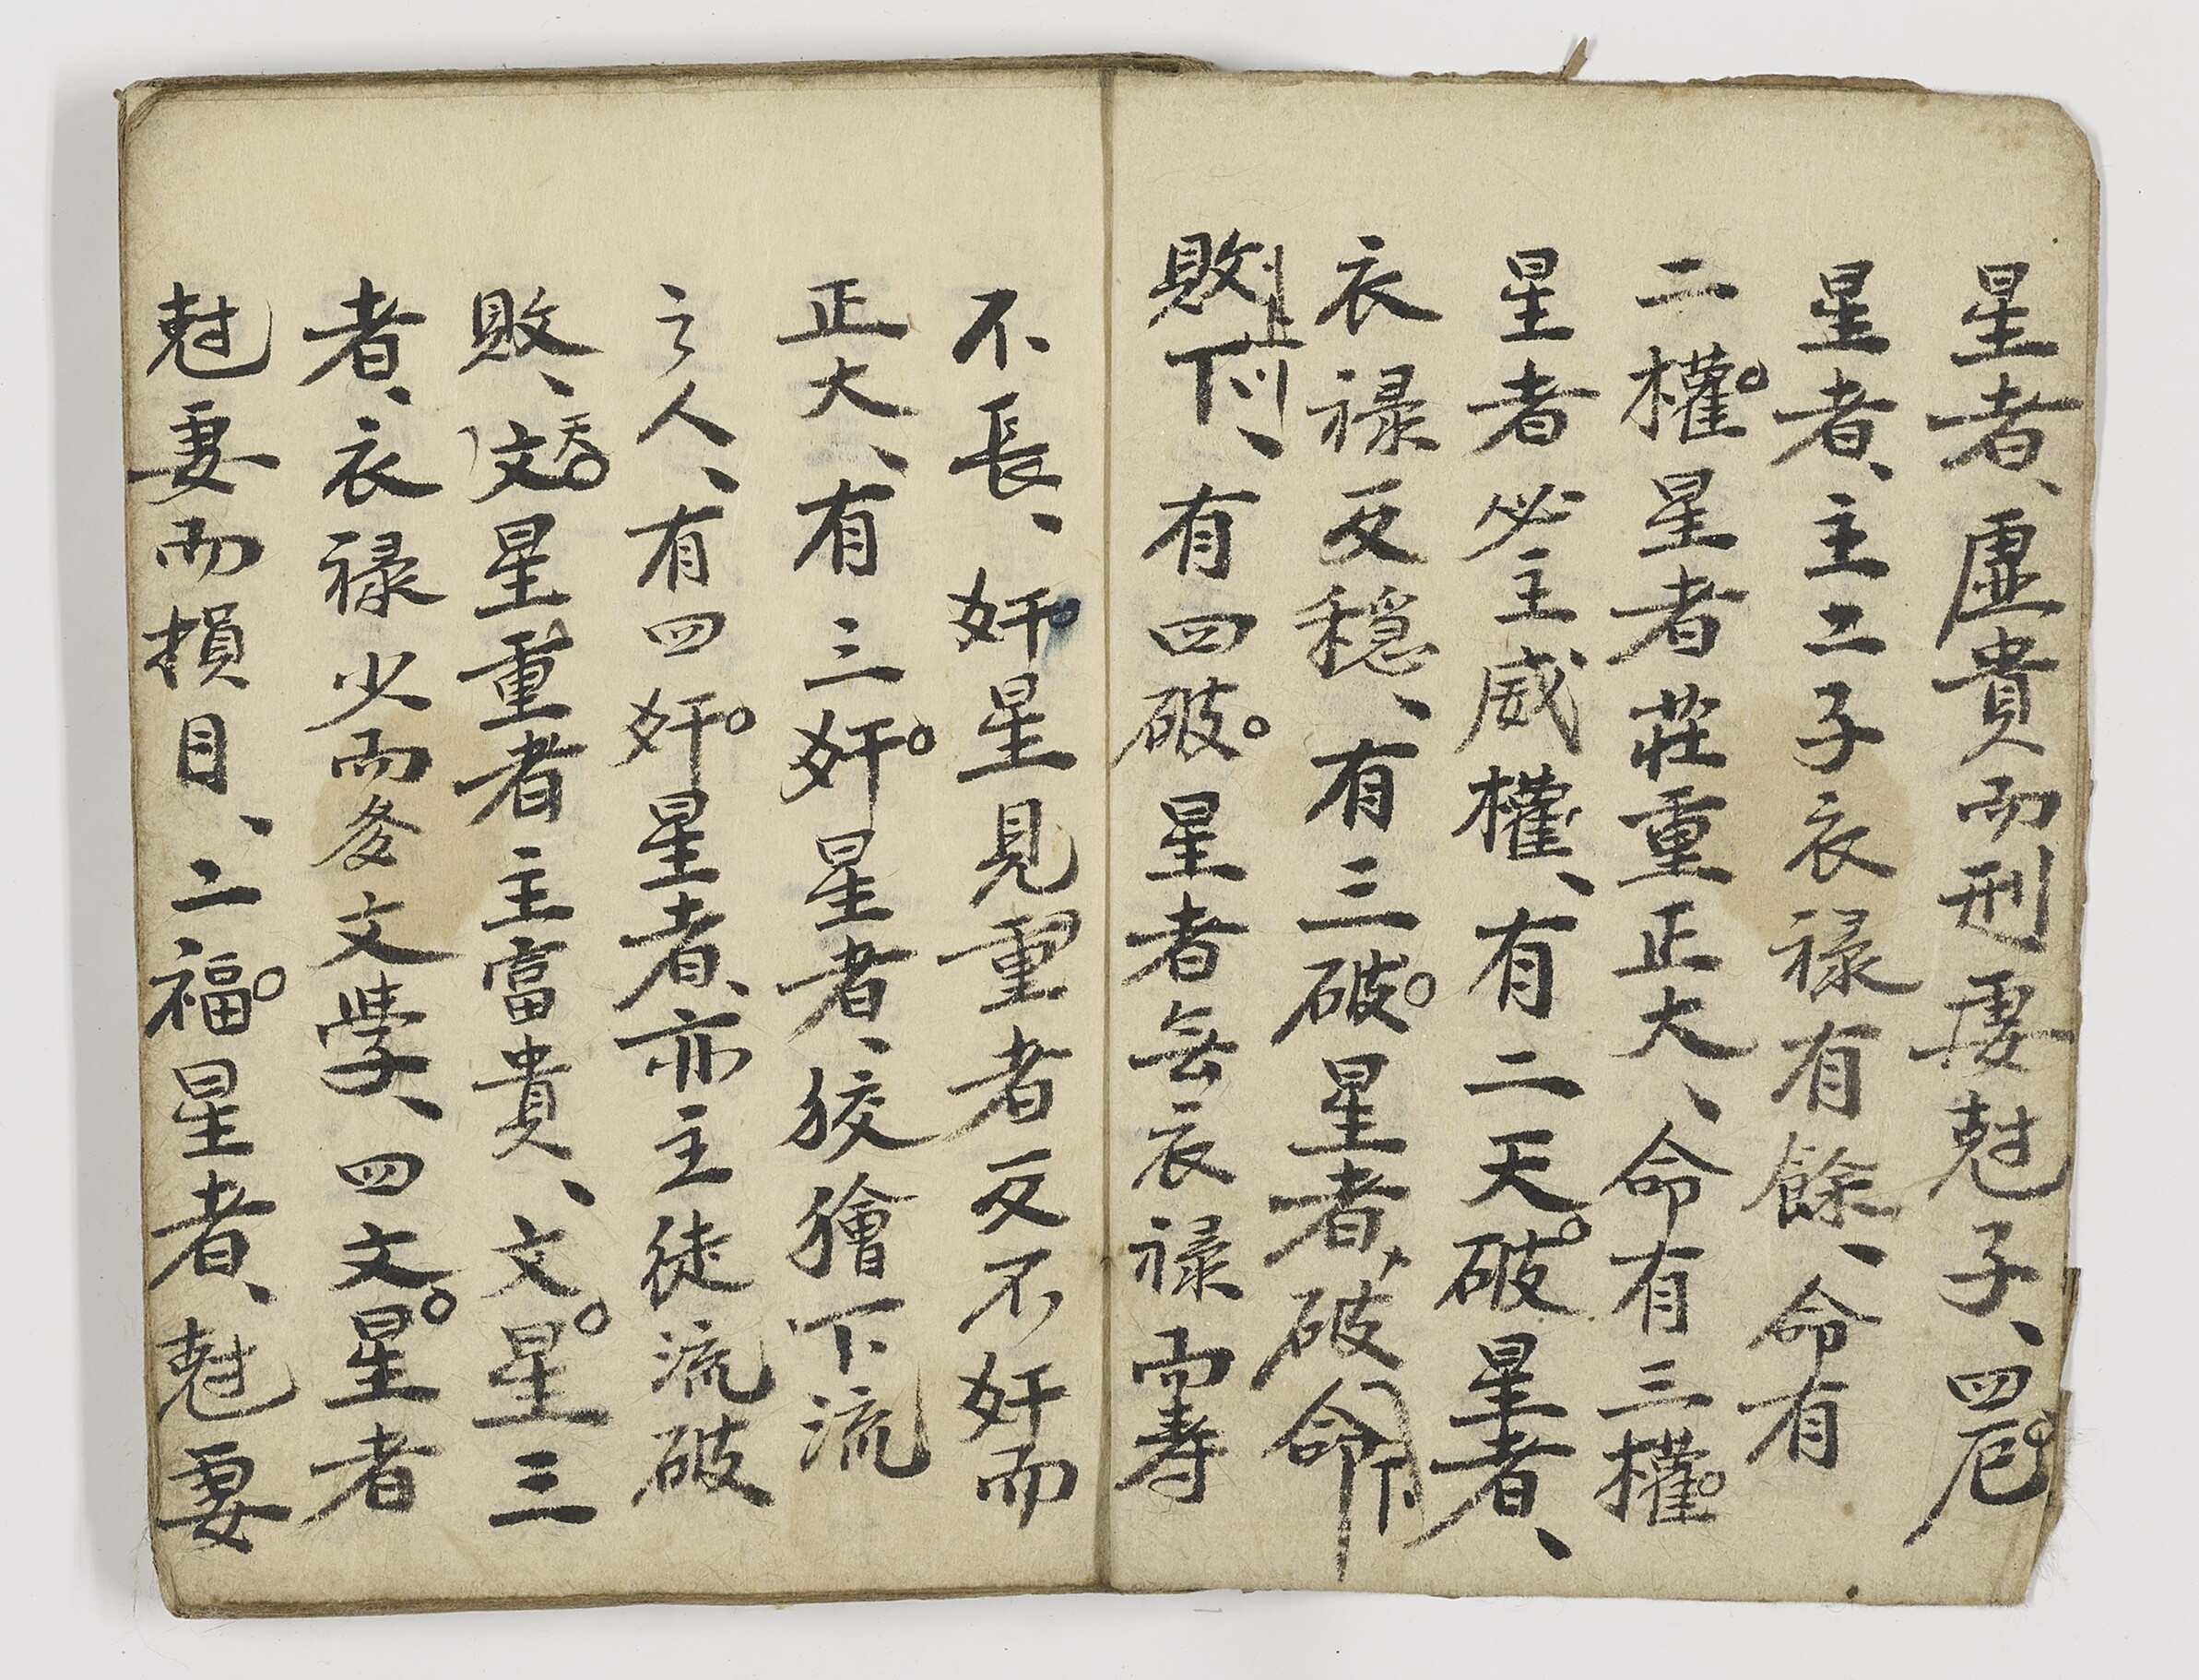 星者、虛貴而刑妻尅子、四厄
星者、主二子衣禄有餘、命有
二權星者莊重正大、命有三權
星者必主威權、有二天破星者、
衣禄反穏、有三破星者、破命下
敗下、有四破星者無衣禄而壽
不長、奸星見重者反不奸而
正大、有三奸星者、狡獪下流
之人、有四奸星者、亦主徒流破
敗、天文星重者主富貴、文星三
者、衣禄少而多文学、四文星者
尅妻而損目、二福星者、尅妻